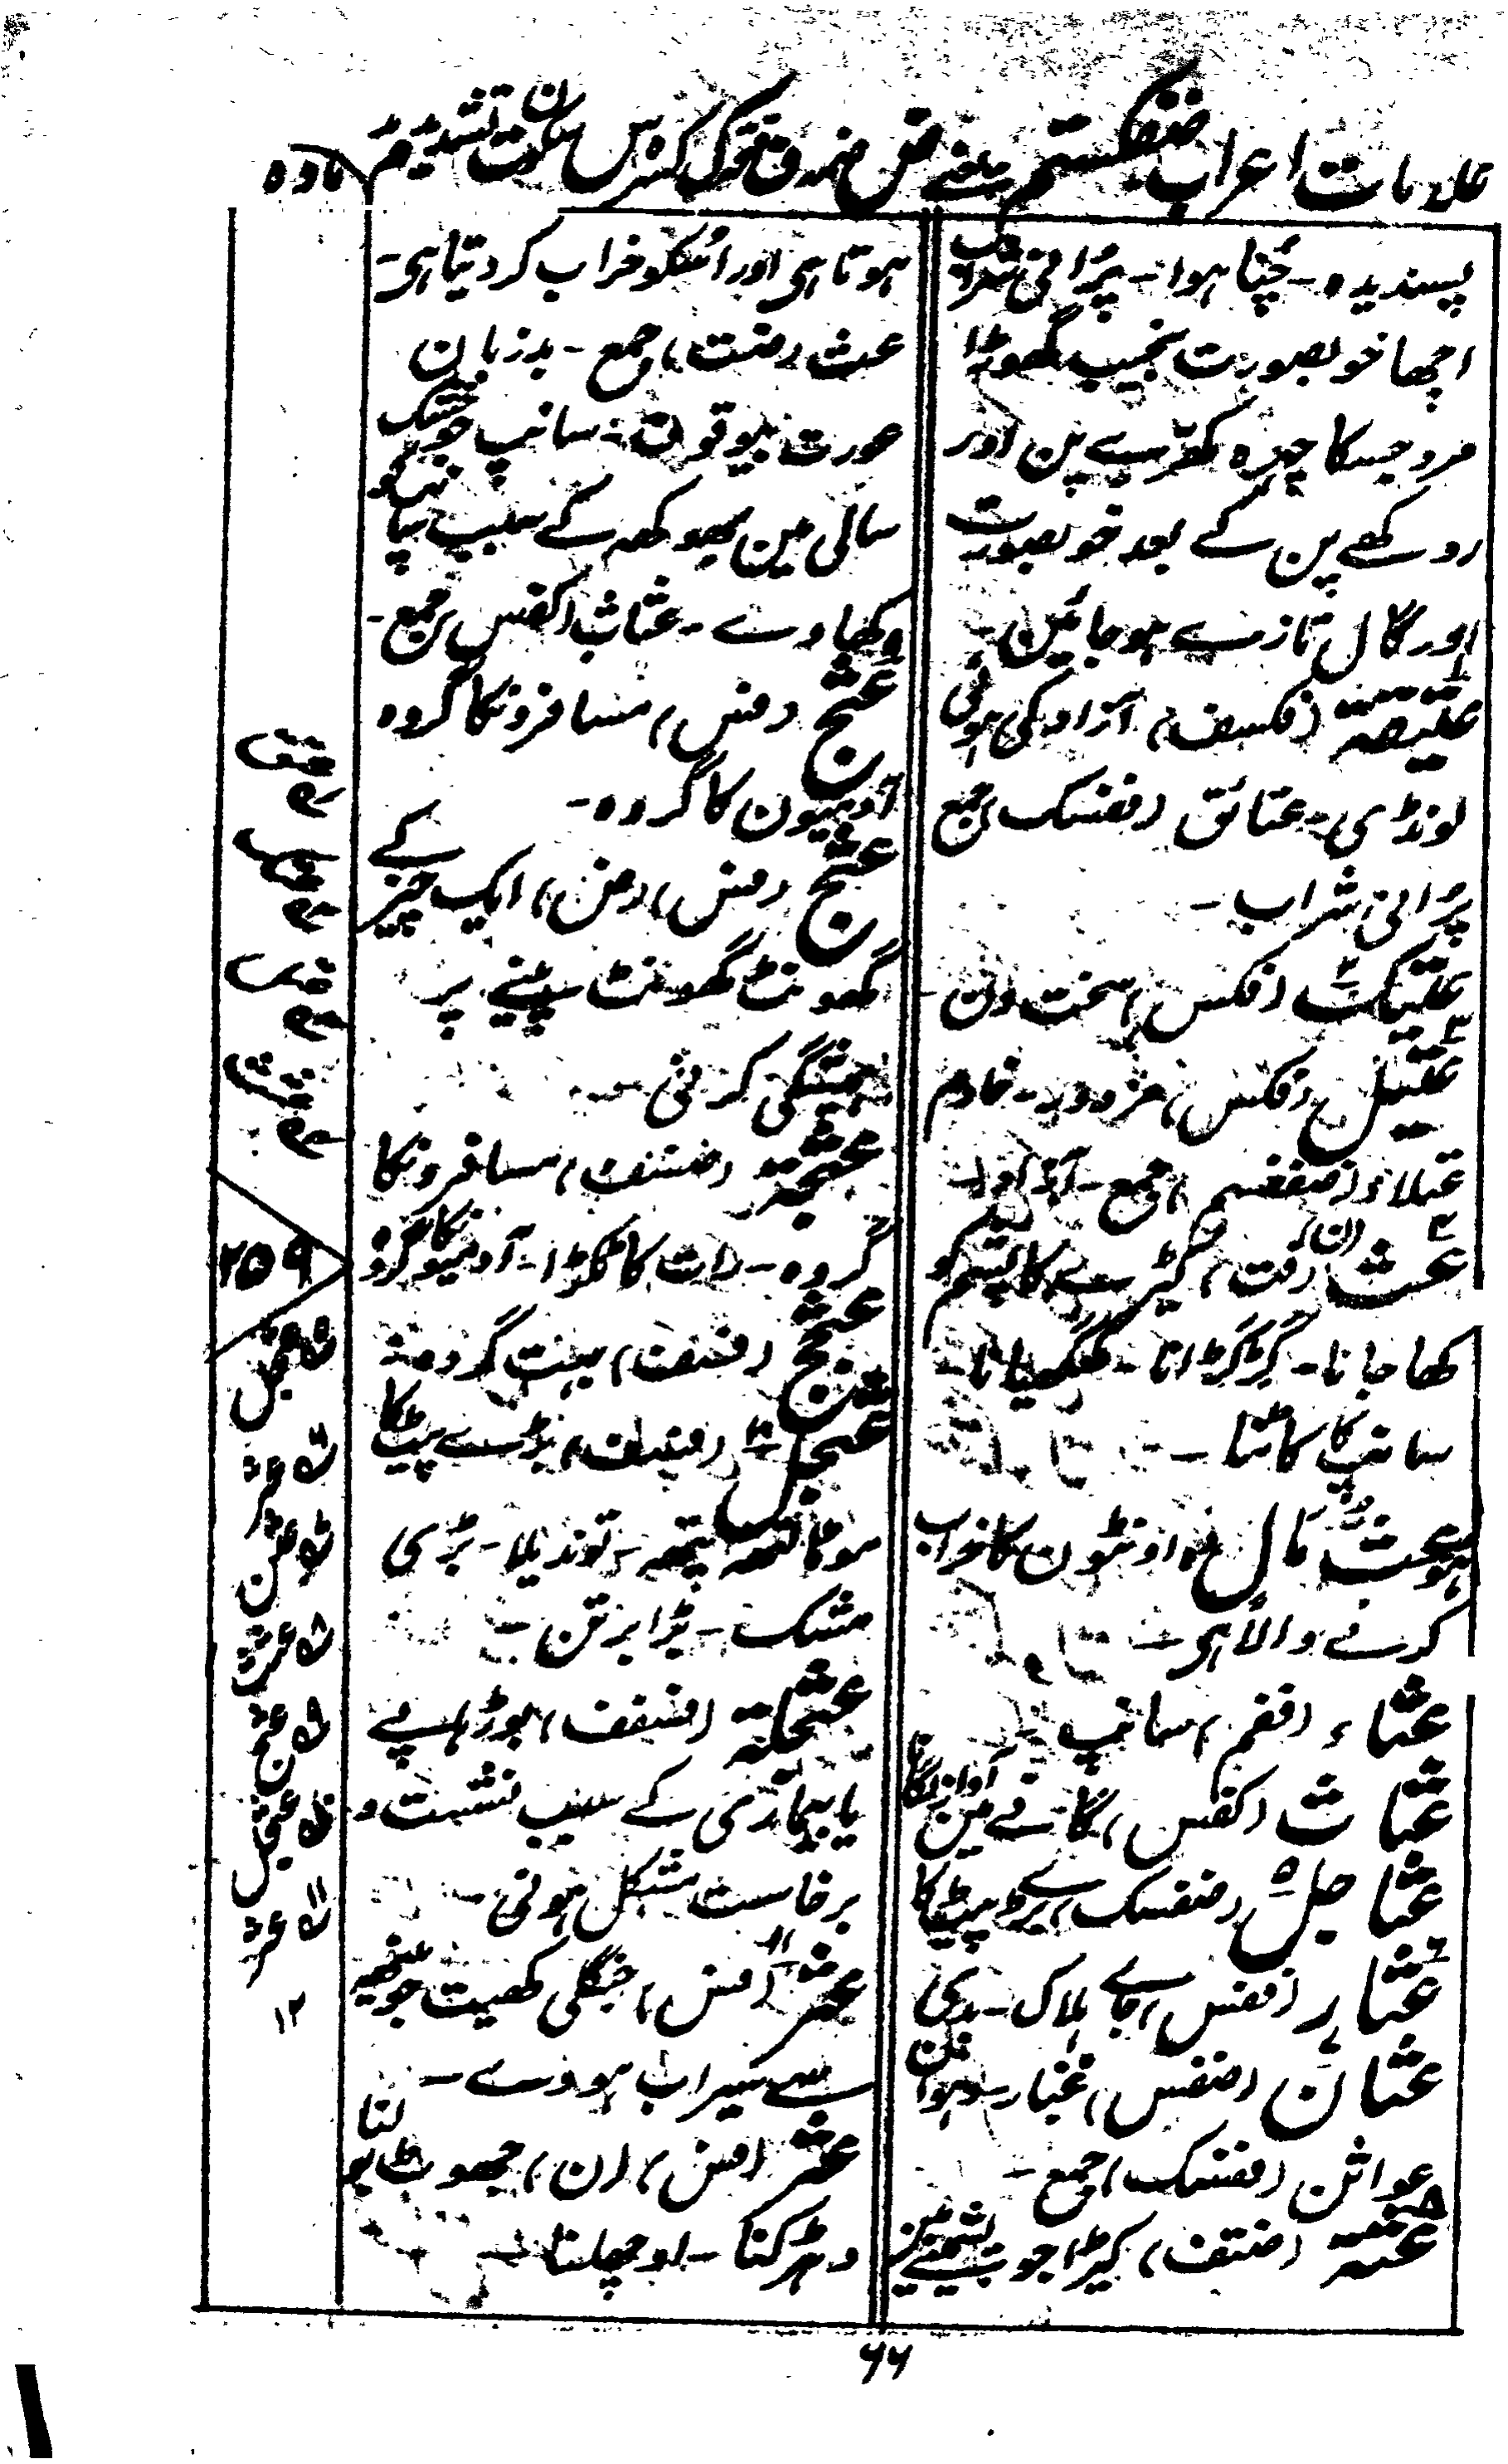 علامات اعراب ضفکستم یعنے ض ضمہ ف فتحہ ک کسرہ س سکون ت تشدید م مد
مادہ
پسندیدہ - چُنا ہوا - پُرانی شراب
اچھا خوبصورت نجیب گھوڑا
مرد جسکا چہرہ کھرّے پن اور
روکھے پن کے بعد خوبصورت
اور گال تازے ہو جائین -
عتیقة (فکسف) آزاد کی ہوئی
لونڈی - عتائق (ففسک) جمع
پُرانی شراب -
عتیک (فکس) سخت دن -
عتیل (فکس) مزدور - خادم
عتلاء (ضففسم) جمع -
عث (فت) (ن) کیڑے کا پشم کو
کھا جانا - گڑگڑانا - گھگھیانا -
سانپ کا کاٹنا -
مال وہ اونٹون کا خراب
کرنے والا ہی -
عثاء (ففم) سانپ -
عثاث (کفس) گانے مین آواز لگانا
عثاجل (ضفسک) بڑے پیٹ کا
عثار (ففس) جاے ہلاک - بدی
عثان (ضفس) غبار - دہوان
عواثن (ففسک) جمع -
عثة (ضتف) کیڑا جو پشمینے مین
ہوتا ہی اور اُسکو خراب کر دیتا ہی -
عث (ضت) جمع - بدزبان
عورت بیوقوف - سانپ جو خشک
سالی مین بھوکھہ کے سبب
کھاوے - عثاث (کفس) جمع -
عثج (فس) مسافرونکا گروہ
آدمیون کا گروہ -
عثج (فس) (ض) ایک چیز کے
گھونٹ گھونٹ پینے پر
ہمیشگی کرنی -
عثجة (ضسف) مسافرونکا
گروہ - رات کا ٹکڑا - آدمیونکا گروہ
عثجج (فسف) بہت گروہ
عثجل (فسف) بڑے پیٹ کا
موٹا - توندیلا - بڑی
مشک - بڑا برتن -
عثجلة (فسفف) بوڑہاپے
یا بیماری کے سبب نشست و
برخاست مشکل ہونی -
عثر (فس) جنگلی کھیت جو مینھہ
سے سیراب ہووے -
عثر (فس) (ن) جھوٹ بولنا
دہڑکنا - اوچھلنا -
عتق
عتک
عتل
عثث
۲۵۹
عثجل
عثر
عثن
عثث
عثج
عثجل
عثر
۱۲
۶۶